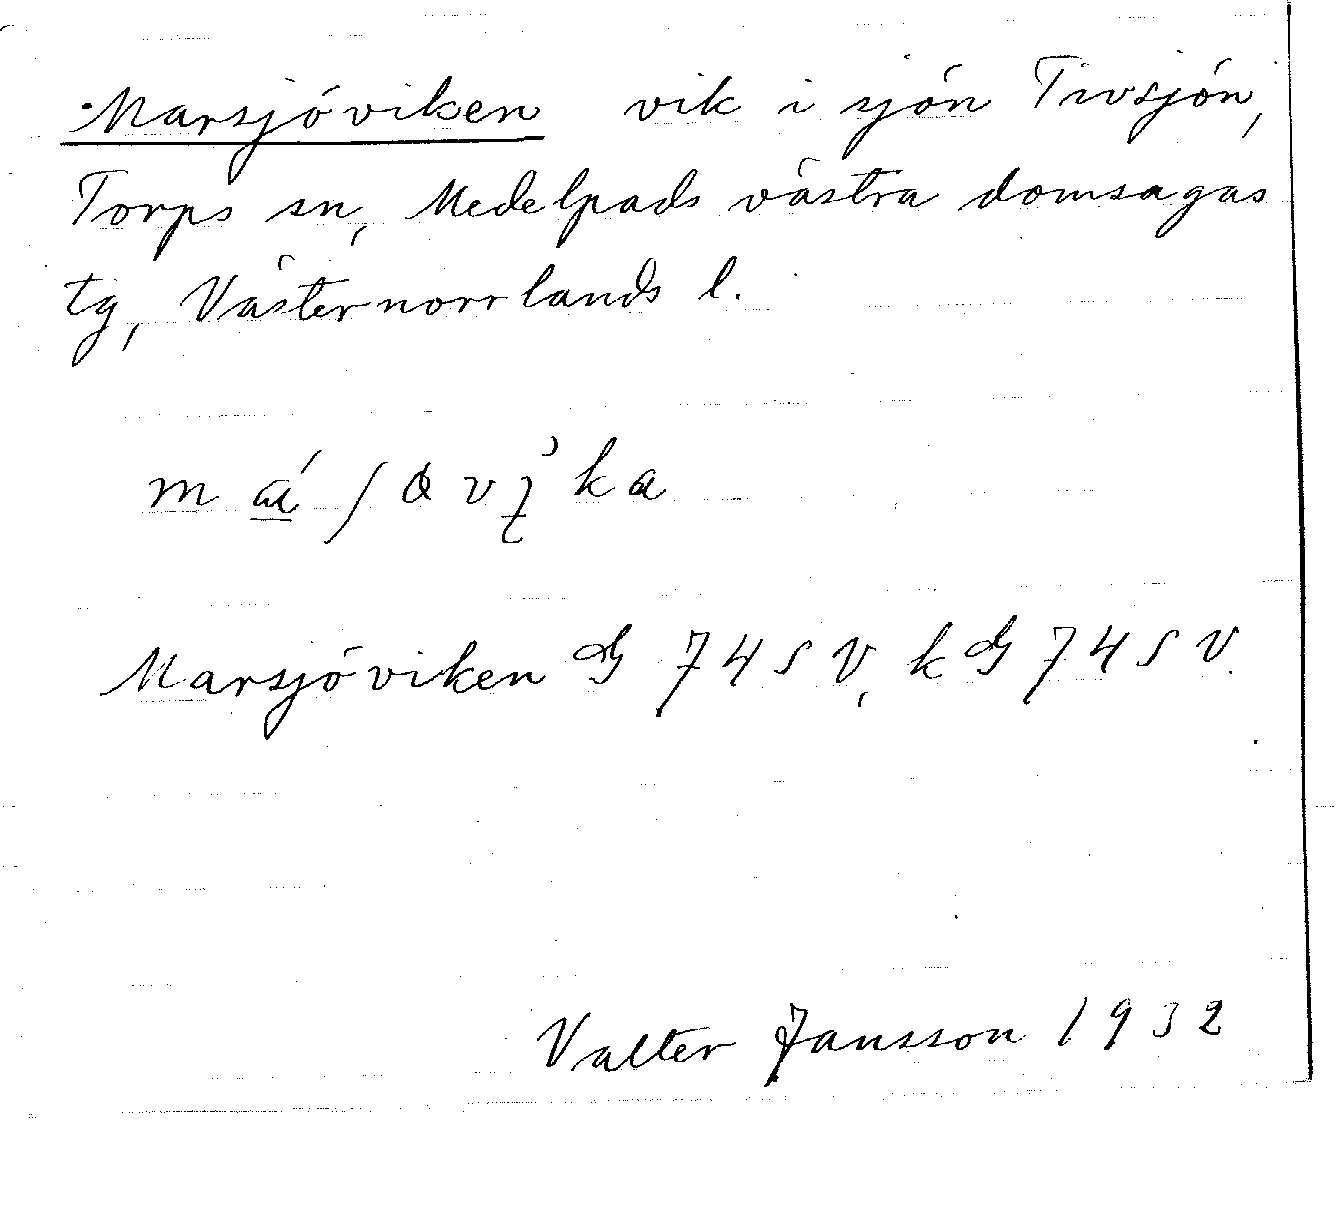 Marsjöviken vik i sjön Tivsjön,
Torps sn, Medelpads västra domsagas
tg, Västernorrlands l.
Marsjöviken G 74 S V, k G 74 S V.
Valter Jansson 1932